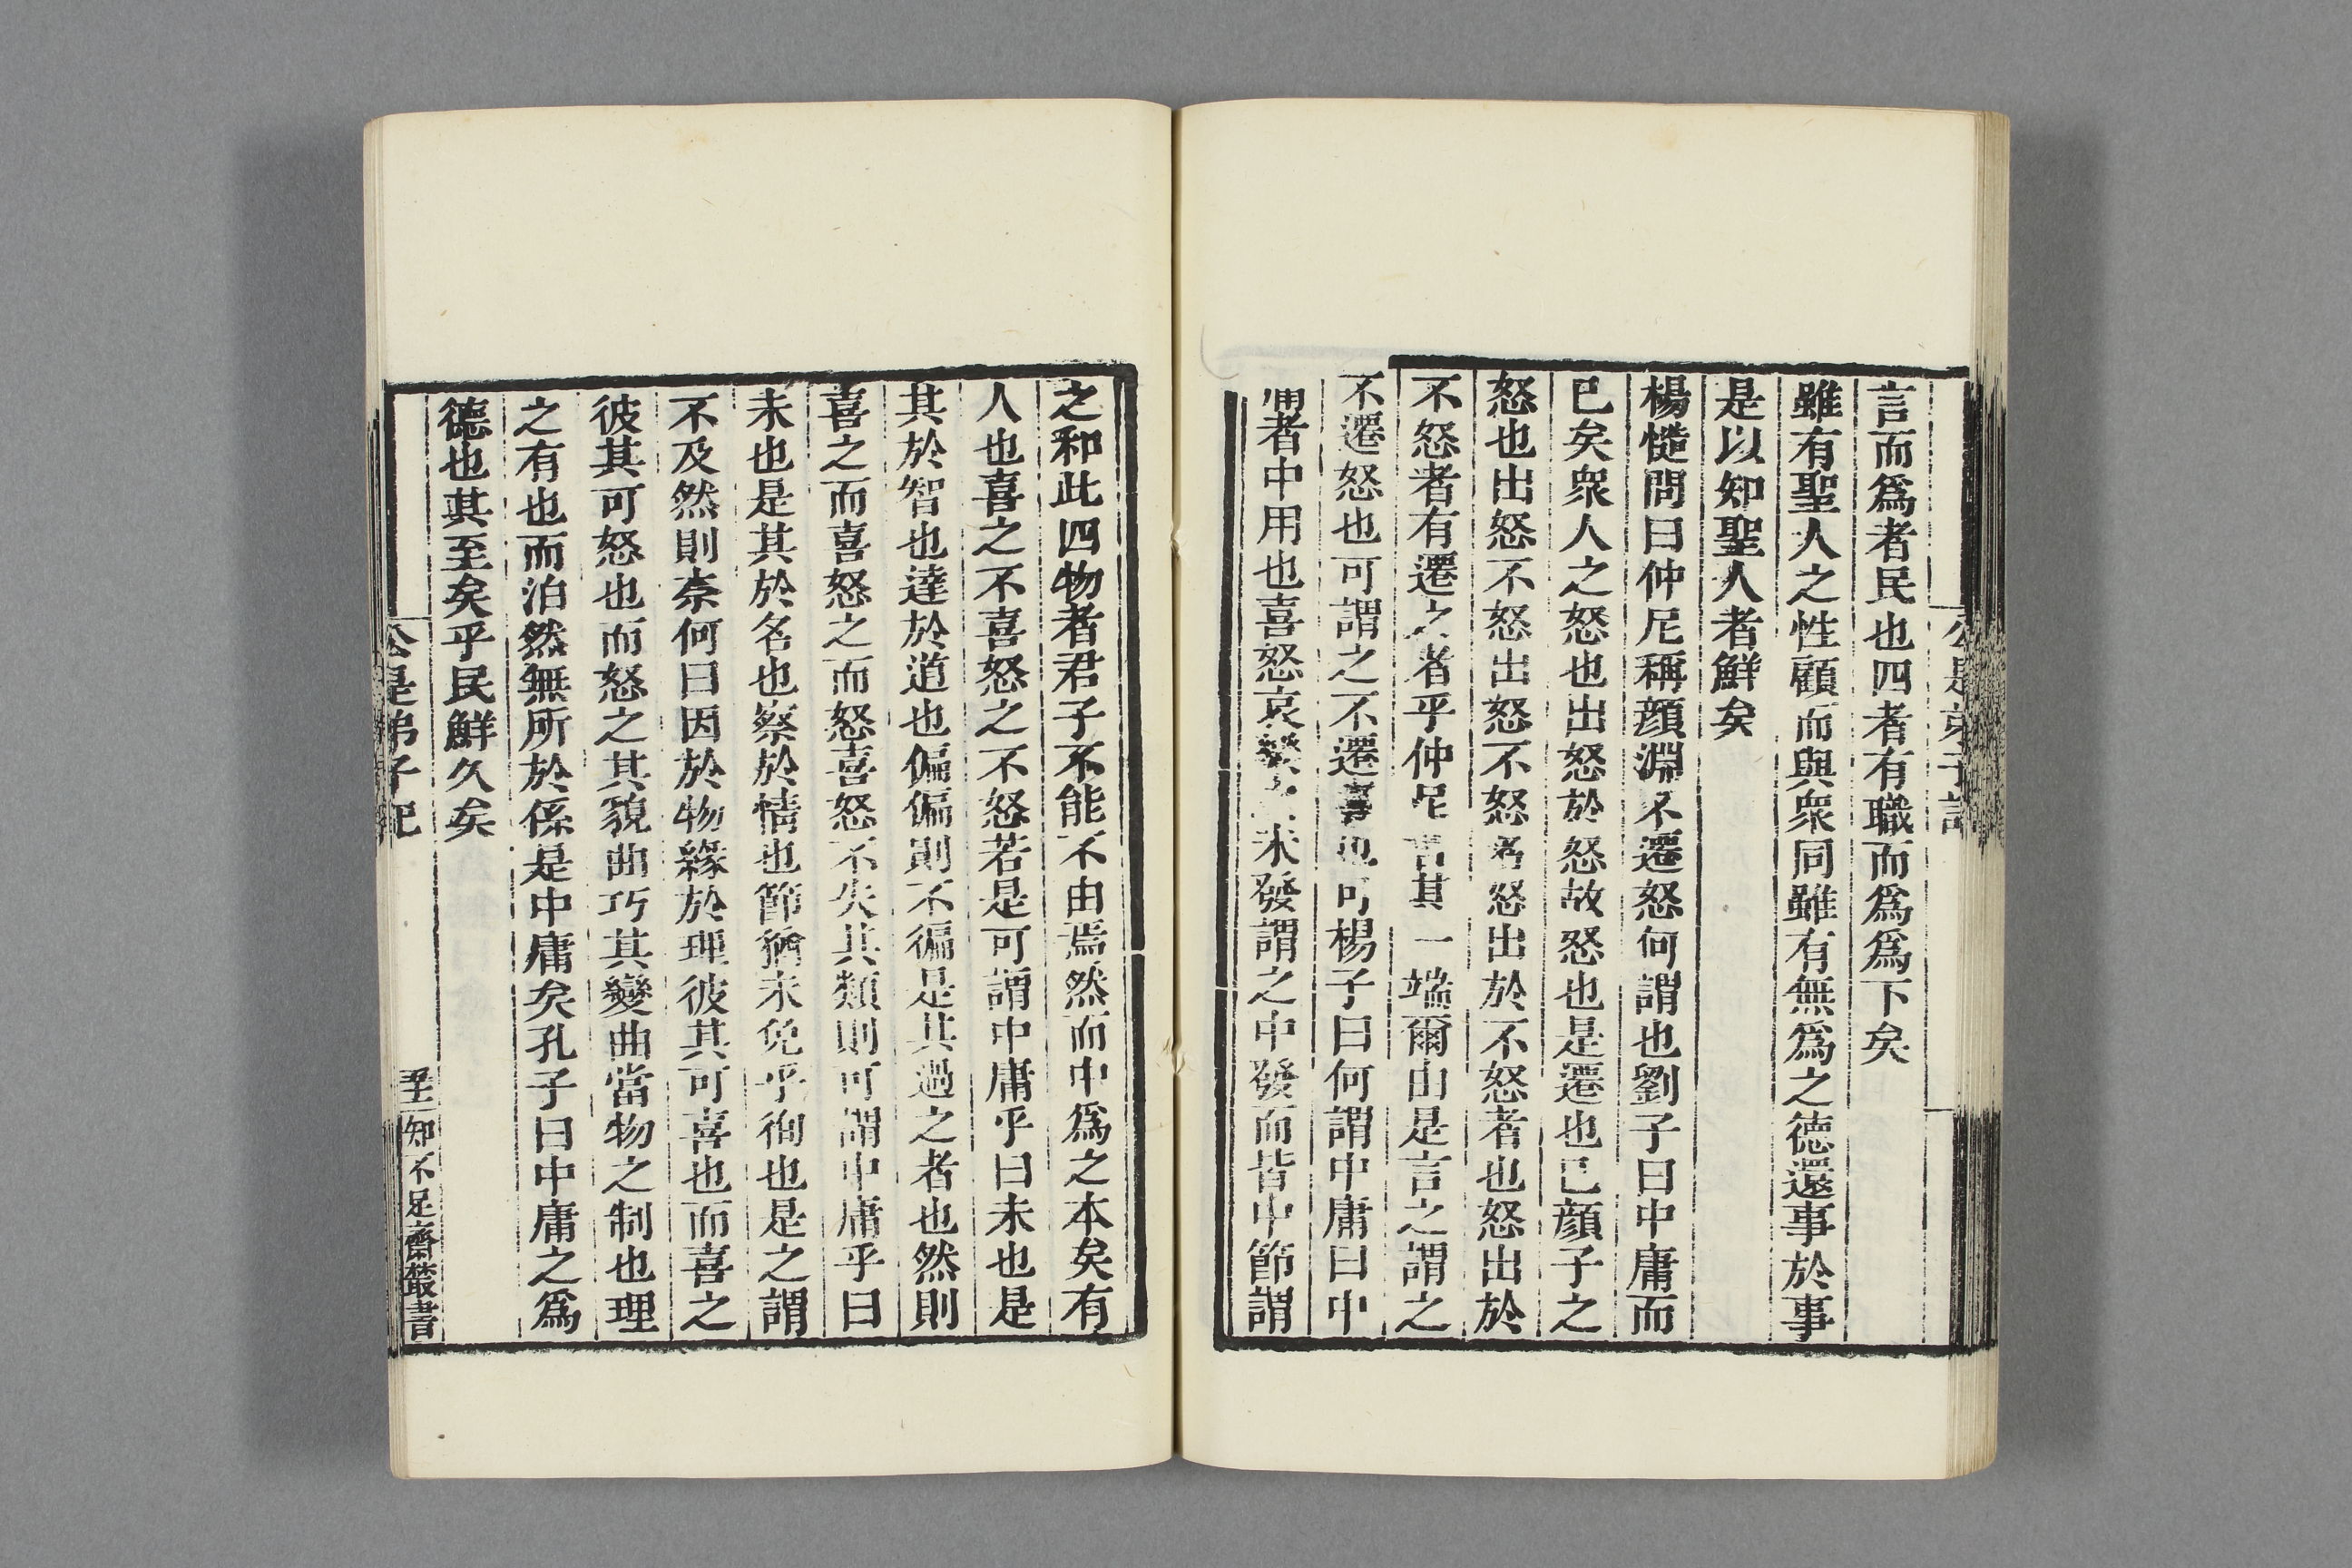 言而爲者民也四者有職而爲爲下矣
雖有聖人之性顧而與衆同雖有無爲之德還事於事
是以知聖人者鮮矣
楊慥問曰仲尼稱顔淵不遷怒何謂也劉子曰中庸而
已矣衆人之怒也出怒於怒故怒也是遷也已顔子之
怒也出怒不怒出怒不怒者怒出於不怒者也怒出於
不怒者有遷之者乎仲尼言其一端爾由是言之謂之
不遷怒也可謂之不遷喜也可楊子曰何謂中庸曰中
庸者中用也喜怒哀樂之未發謂之中發而皆中節謂
公是弟子記
之和此四物者君子不能不由焉然而中爲之本矣有
人也喜之不喜怒之不怒若是可謂中庸乎曰未也是
其於智也達於道也偏偏則不徧是其過之者也然則
喜之而喜怒之而怒喜怒不失其類則可謂中庸乎曰
未也是其於名也察於情也節猶未免乎徇也是之謂
不及然則柰何曰因於物緣於理彼其可喜也而喜之
彼其可怒也而怒之其貌曲巧其變曲當物之制也理
之有也而泊然無所於係是中庸矣孔子曰中庸之爲
德也其至矣乎民鮮久矣
公是弟子記
知不足齋叢書